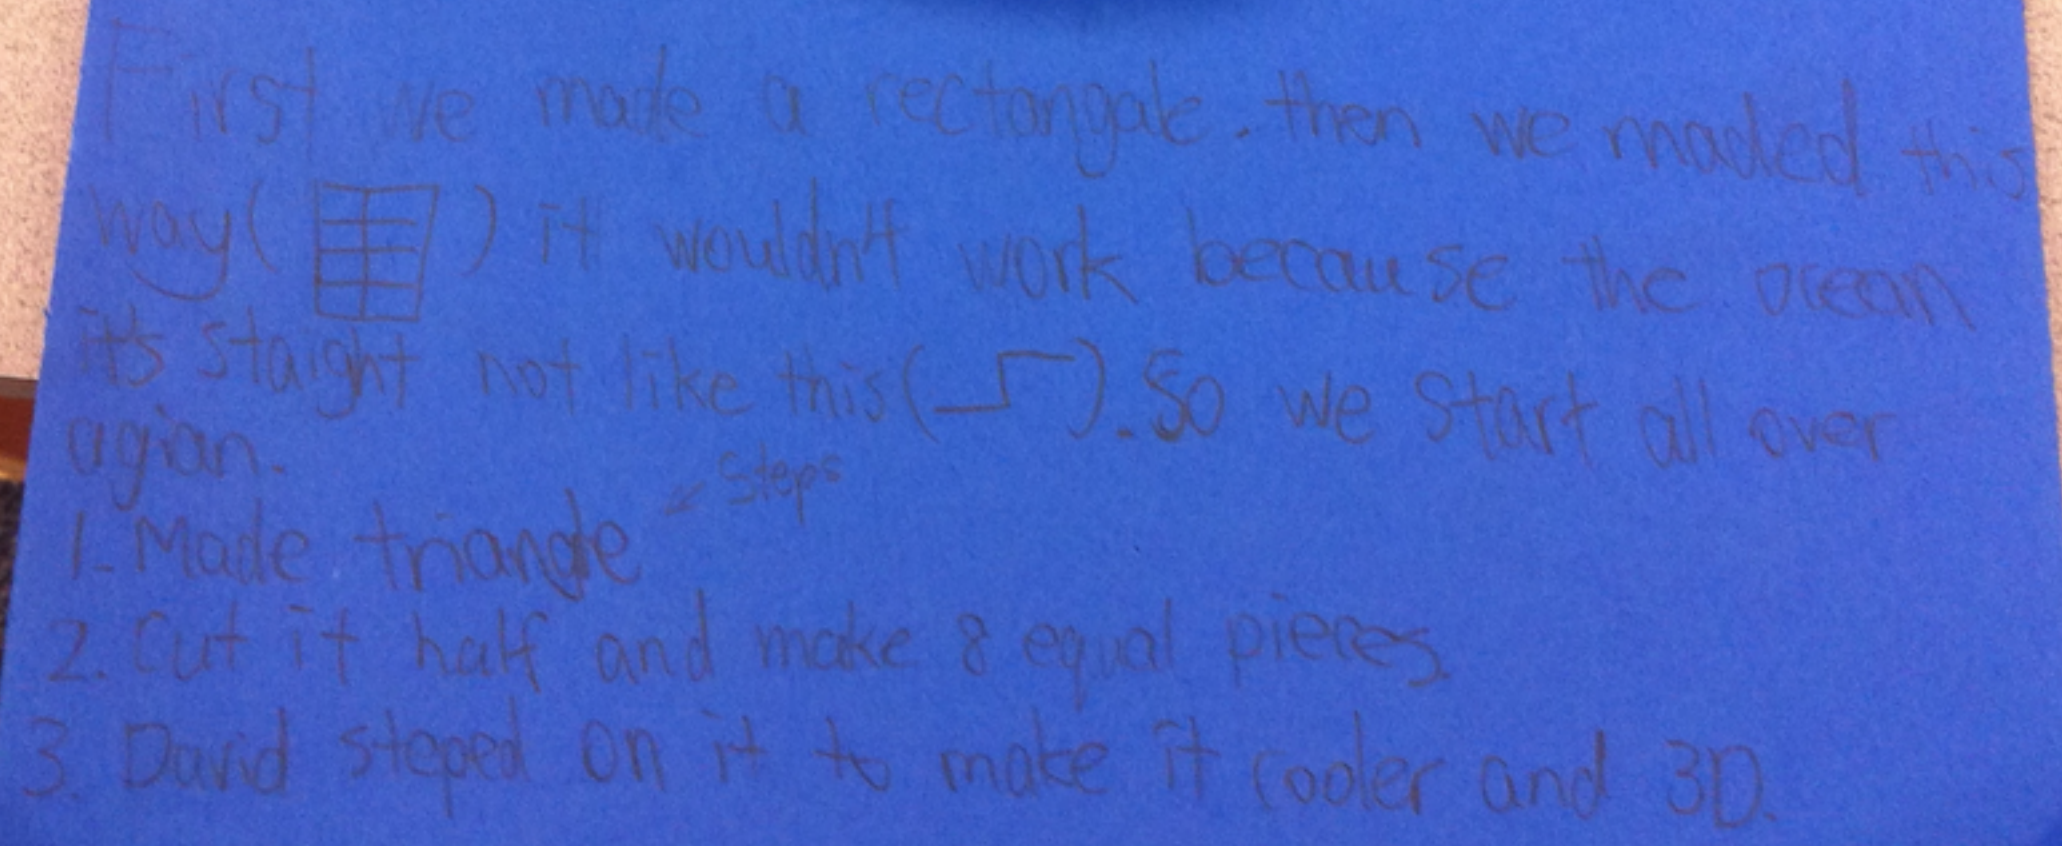 First we made a rectangale. then we maded this
way( ) it wouldn't work because the ocean
it's staight not like this( ). So we start all over
agian.
← steps
1. Made triangle
2. Cut it half and make 8 equal pieces.
3. David steped on it to make it cooler and 3D.